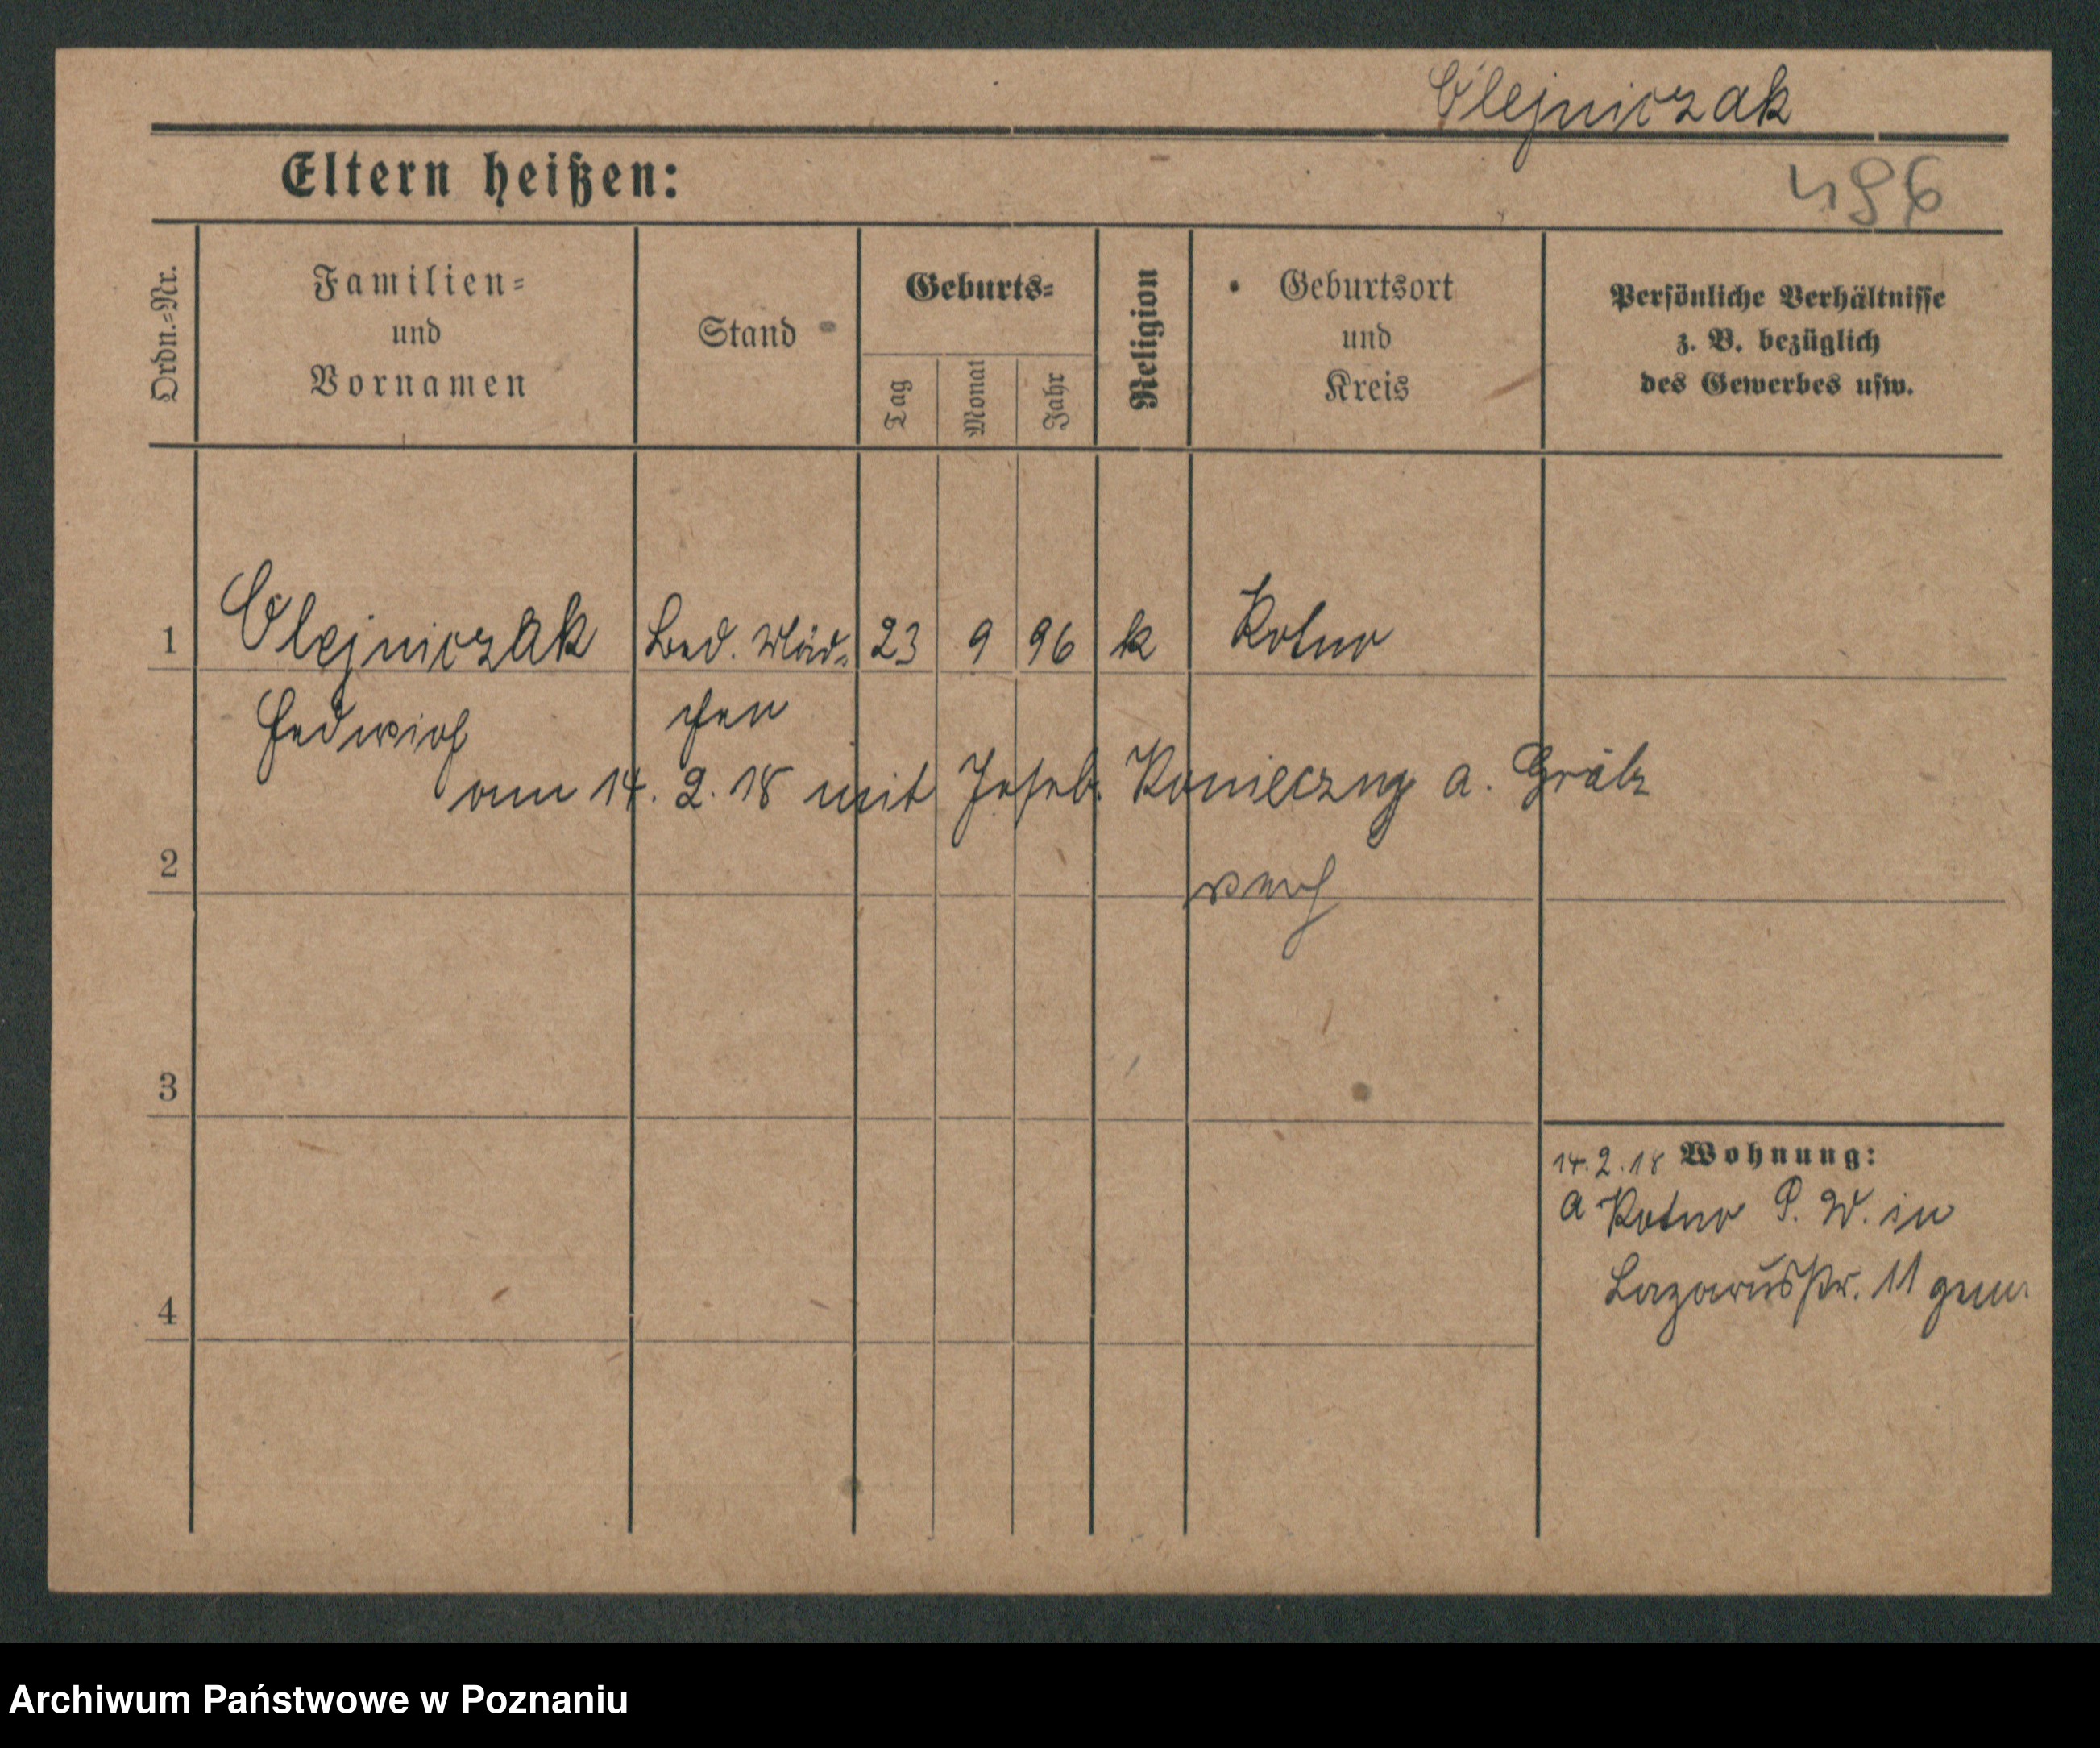 Olejniczak
Eltern heißen:
496
Ordn.-Nr.
Familien-
und
Vornamen
Stand
Geburts-
Tag
Monat
Jahr
Religion
Geburtsort
und
Kreis
Persönliche Verhältnisse
z. B. bezüglich
des Gewerbes usw.
1
Olejniczak
Led. Mäd-
23 9 96 k
Kotno
Hedwich
chen
am 14. 2. 18 mit Konieczny a. Grätz
2
3
14. 2. 18 Wohnung:
a Kotno P. W. in
Lazarusstr. 11
4
Archiwum Państwowe w Poznaniu